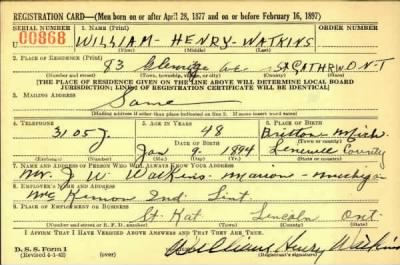 REGISTRATION CARD—(Men born on or after April 28, 1877 and on or before February 16, 1897)
SERIAL NUMBER 1. NAME (Print) ORDER NUMBER
U 00868 WILLIAM - HENRY - WATKINS
(First) (Middle) (Last)
2. PLACE OF RESIDENCE (Print)
83 Ave St CATHRW ONT
(Number and street) (Town, township, village, or city) (County) (State)
[THE PLACE OF RESIDENCE GIVEN ON THE LINE ABOVE WILL DETERMINE LOCAL BOARD
JURISDICTION; LINE 2 OF REGISTRATION CERTIFICATE WILL BE IDENTICAL]
3. MAILING ADDRESS
Same
[Mailing address if other than place indicated on line 2. If same insert word same]
4. TELEPHONE 5. AGE IN YEARS 6. PLACE OF BIRTH
3105 J 48 Britton Mich
DATE OF BIRTH (Town or county)
Jan 9 - 1894 Lenewee County
(Mo.) (Day) (Yr.) (State or country)
7. NAME AND ADDRESS OF PERSON WHO WILL ALWAYS KNOW YOUR ADDRESS
Mr. J W Watkins - Marion - Michigan
8. EMPLOYER'S NAME AND ADDRESS
McKinnon Ind.
9. PLACE OF EMPLOYMENT OR BUSINESS
St. Kat Lincoln Ont.
(Number and street or R. F. D. number) (Town) (County) (State)
I AFFIRM THAT I HAVE VERIFIED ABOVE ANSWERS AND THAT THEY ARE TRUE.
D. S. S. Form 1
(Revised 4-1-42) William Henry Watkins
(Registrant's signature)